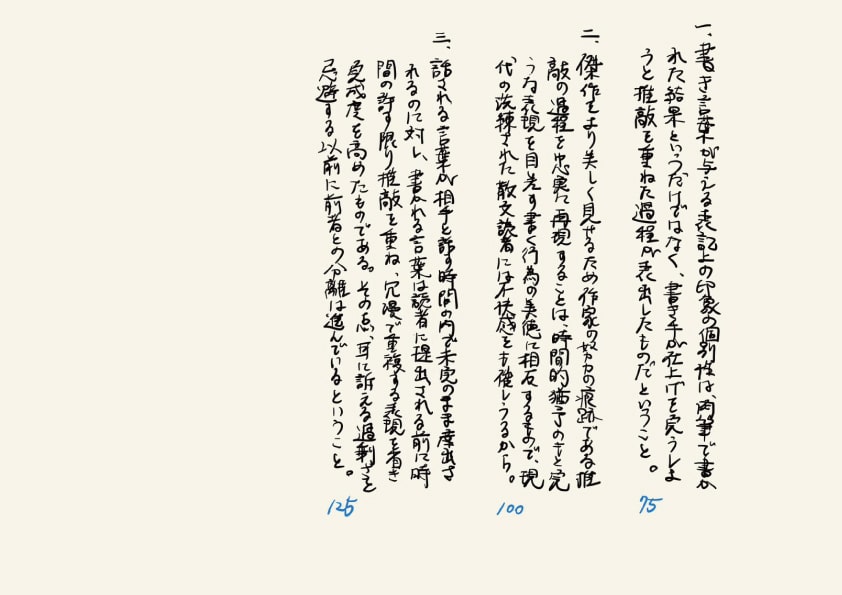 一、書き言葉が与える表記上の印象の個別性は、肉筆で書か
れた結果というだけではなく、書き手が仕上げを完うしよ
うと推敲を重ねた過程が表出したものだということ。
75
二、傑作をより美しく見せるため作家の努力の痕跡である推
敲の過程を忠実に再現することは、時間的猶予のもと完
うな表現を目差す書く行為の美徳に相反するもので、現
代の洗練された散文読者には不快感をも催しうるから。
100
三、話される言葉が相手と話す時間の内で未完のまま産出さ
れるのに対し、書かれる言葉は読者に提出される前に時
間の許す限り推敲を重ね、冗漫で重複する表現を省き
完成度を高めたものである。その点、耳に訴える過剰さを
忌避する以前に前者との分離は進んでいるということ。
125